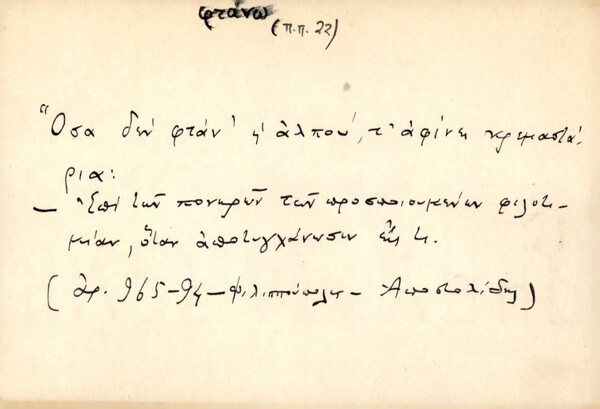 φτάνω
(π.π. 22)
Ὅσα δεν φτάν' η' ἀλπού, τ' ἀφίνει κρεμαστά-
ρια:
— Ἐπί τῶν πονηρῶν τῶν προσποιουμένων φιλοτι-
μίαν, ὅταν ἀποτυγχάνωσιν εἴς τι.
(ἀρ. 965-94 — Φιλιππούπολις — Ἀποστολίδης)